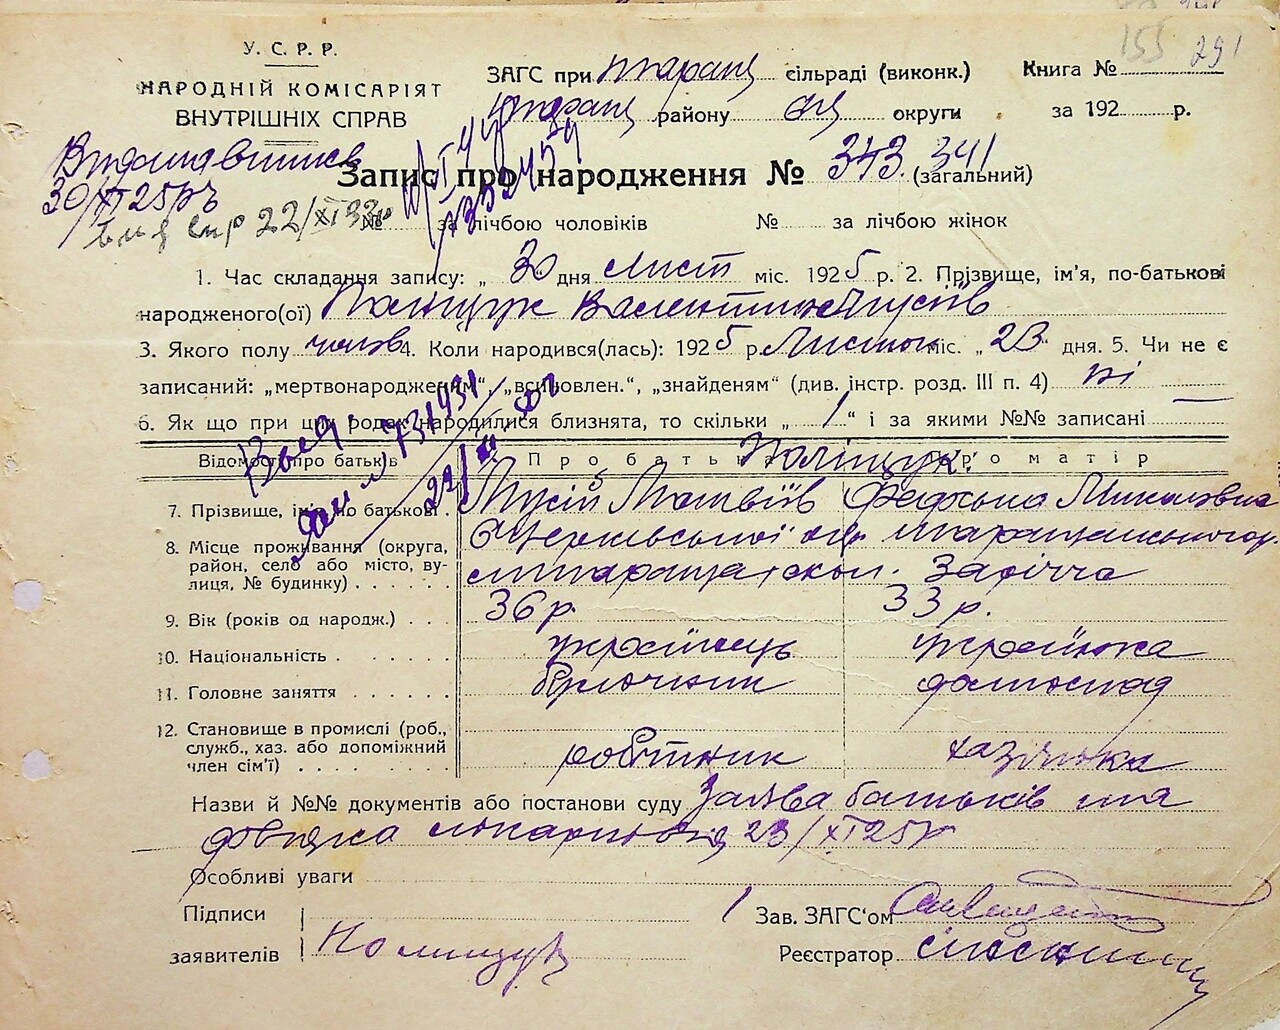 155 291
У. С. Р. Р.
НАРОДНІЙ КОМІСАРІЯТ
ВНУТРІШНІХ СПРАВ
ЗАГС при таращ сільраді (виконк.) Книга №
таращ району округи за 192 р.
30/XI 25 р
22/XI 32 р
Запис про народження № 343. 341 (загальний)
№ за лічбою чоловіків № за лічбою жінок
1. Час складання запису: „ 30 дня лист міс. 1925 р. 2. Прізвище, ім'я, по-батькові
народженого(ої) Поліщук Валентин
3. Якого полу чолов 4. Коли народився(лась): 1925 р. Листоп міс. „ 23. дня. 5. Чи не є
записаний: „мертвонародженим“, „всиновлен.“, „знайденям“ (див. інстр. розд. III п. 4) ні
6. Як що при цих родах народилися близнята, то скільки „ 1 “ і за якими №№ записані
Відомості про батьків Про батька Поліщук Про матір
7. Прізвище, ім'я по батькові . Мусій Матвіїв Федоська Миколовна
8. Місце проживання (округа, район, село або місто, вулиця, № будинку) . . . таращанського
Заріччя
9. Вік (років од народж.) . . . 36 р. 33 р.
10. Національність . . . . . . українець українка
11. Головне заняття . . . . . . булочник домогосп
12. Становище в промислі (роб., служб., хаз. або допоміжний член сім'ї) . . . . . . . робітник хазяйка
Назви й №№ документів або постанови суду Заява батьків та
довідка лікарні від 23/XI 25 р
Особливі уваги
Підписи Зав. ЗАГС'ом
заявителів Полищук Реєстратор